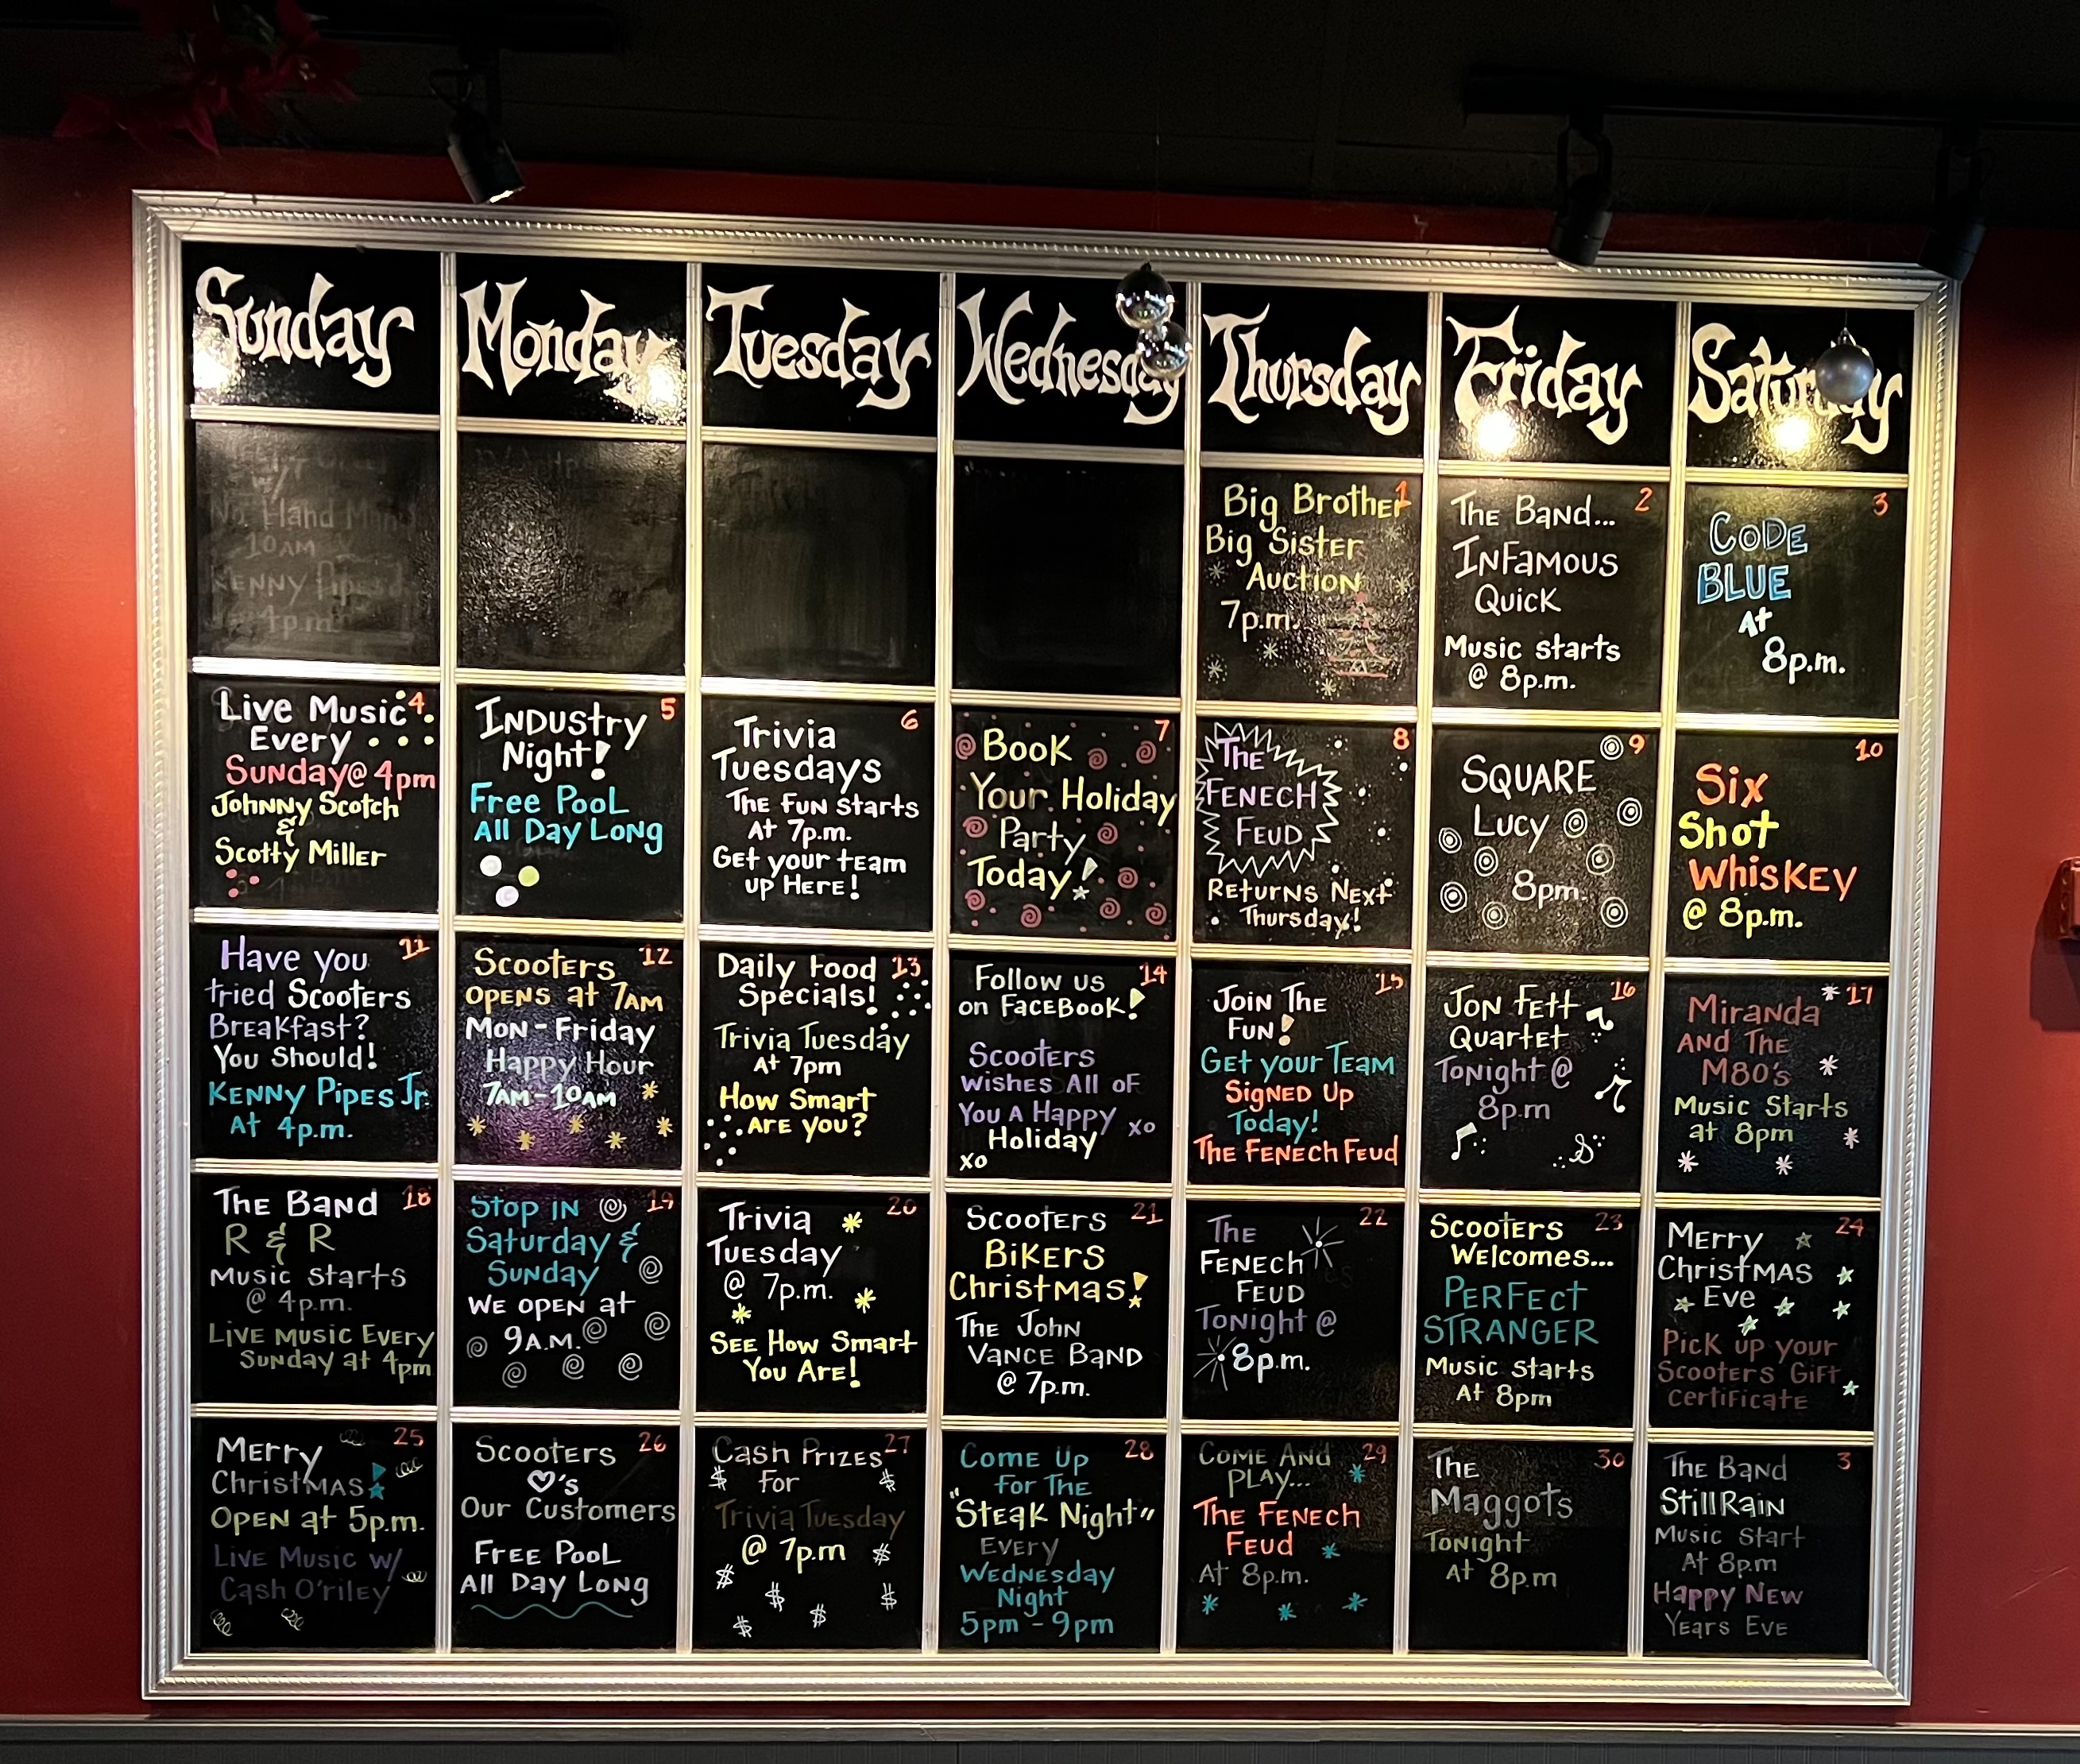 Sunday Monday Tuesday Wednesday Thursday Friday Saturday
w/
No Hand
10AM
KENNY
4p.m.
1
Big Brother
Big Sister
Auction
7p.m.
2
The Band...
InFamous
Quick
Music starts
@ 8p.m.
3
CODE
BLUE
At
8p.m.
4
Live Music
Every
Sunday @ 4pm
Johnny Scotch
&
Scotty Miller
5
Industry
Night!
Free Pool
All Day Long
6
Trivia
Tuesdays
The Fun starts
At 7p.m.
Get your team
up Here!
7
Book
Your Holiday
Party
Today!
8
The
Fenech
Feud
Returns Next
Thursday!
9
SQUARE
Lucy
8pm.
10
Six
Shot
Whiskey
@ 8p.m.
11
Have you
tried Scooters
Breakfast?
You Should!
Kenny Pipes Jr.
At 4p.m.
12
Scooters
opens at 7AM
Mon-Friday
Happy Hour
7AM-10AM
13
Daily Food
Specials!
Trivia Tuesday
At 7pm
How Smart
Are you?
14
Follow us
on FaceBook!
Scooters
wishes All of
You A Happy
Holiday xo
xo
15
Join The
Fun!
Get your Team
Signed Up
Today!
The Fenech Feud
16
Jon Fett
Quartet
Tonight @
8p.m
17
Miranda
And The
M80's
Music Starts
at 8pm
18
The Band
R & R
Music starts
@ 4p.m.
Live music Every
Sunday at 4pm
19
Stop in
Saturday &
Sunday
We open at
9A.M.
20
Trivia
Tuesday
@ 7p.m.
See How Smart
You Are!
21
Scooters
Bikers
Christmas!
The John
Vance Band
@ 7p.m.
22
The
Fenech
Feud
Tonight @
8p.m.
23
Scooters
Welcomes...
Perfect
Stranger
Music starts
At 8pm
24
Merry
Christmas
Eve
Pick up your
Scooters Gift
certificate
25
Merry
Christmas!
Open at 5p.m.
Live Music w/
Cash O'riley
26
Scooters
♡'s
Our Customers
Free Pool
All Day Long
27
Cash Prizes
$ for $
Trivia Tuesday
@ 7p.m $
$ $ $
$ $
28
Come Up
for The
"Steak Night"
Every
Wednesday
Night
5pm - 9pm
29
Come And
Play...
The Fenech
Feud
At 8p.m.
30
The
Maggots
Tonight
At 8p.m
3
The Band
StillRain
Music Start
At 8p.m
Happy New
Years Eve